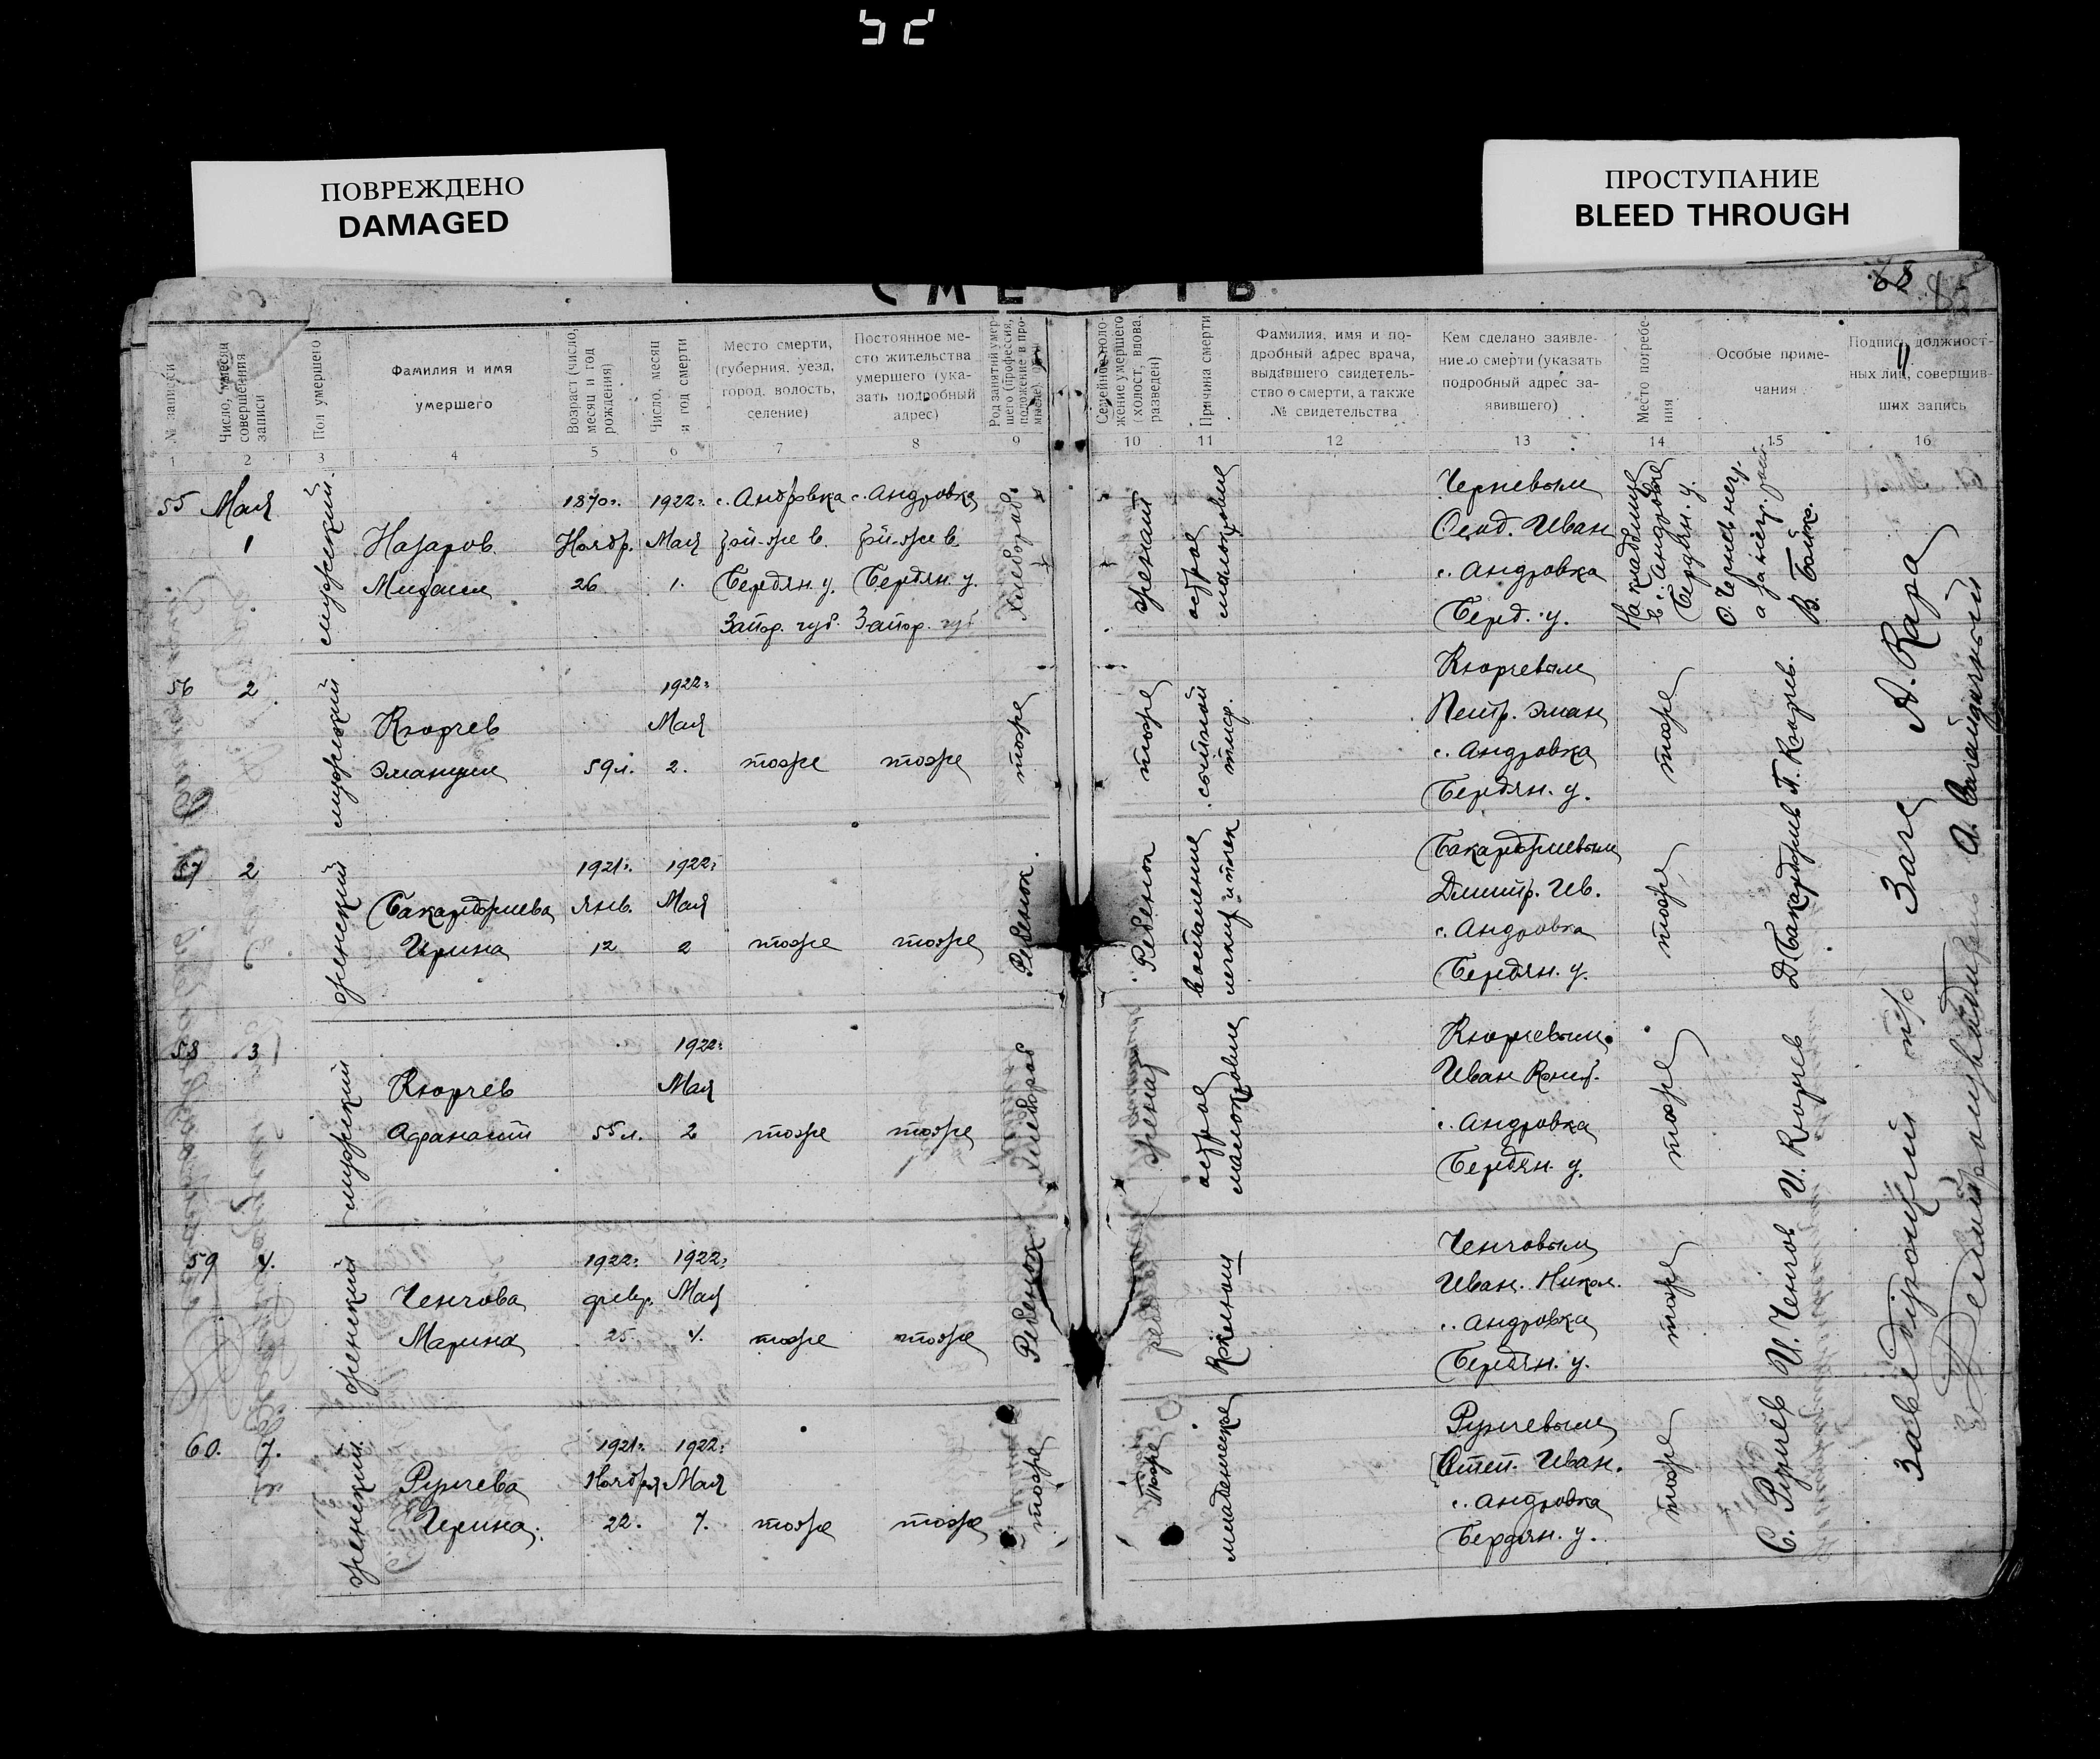 52
ПОВРЕЖДЕНО
DAMAGED
ПРОСТУПАНИЕ
BLEED THROUGH
СМЕРТЬ
85
№ записи
Число, месяц совершения записи
Пол умершего
Фамилия и имя умершего
Возраст (число, месяц и год рождения)
Число, месяц и год смерти
Место смерти, (губерния, уезд, город, волость, селение)
Постоянное место жительства умершего (указать подробный адрес)
Род занятий умершего (профессия, положение в промысле)
Семейное положение умершего (холост, вдова, разведен)
Причина смерти
Фамилия, имя и подробный адрес врача, выдавшего свидетельство о смерти, а также № свидетельства
Кем сделано заявление о смерти (указать подробный адрес заявившего)
Место погребения
Особые примечания
Подпись должностных лиц, совершивших запись
1 2 3 4 5 6 7 8 9 10 11 12 13 14 15 16
55 Мая 1
мужеский
Назаров
Михаил
1870г.
Ноябр.
26
1922г.
Мая
1.
с. Андровка
той-же в.
Бердян. у.
Запор. губ.
с. Андровка
той-же в.
Бердян. у.
Запор. губ.
Хлебороб
женат
острое
малокровие
Черневым
Иван
с. Андровка
Берд. у.
На кладбище
с. Андровка
Бердян. у.
В. Бойко.
56 2
мужеский
Кюрчев
Эмануил
59 л.
1922г.
Мая
2.
тоже
тоже
тоже
тоже
сыпной
тиф.
Кюрчевым
Петр. Эман
с. Андровка
Бердян. у.
тоже
П. Кюрчев.
57 2
женский
Бакарджиева
Ирина
1921г.
янв.
12
1922г.
Мая
2
тоже
тоже
Ребенок
Ребенок
воспаление
легких
Бакарджиевым
Дмитр. Ив.
с. Андровка
Бердян. у.
тоже
Д. Бакарджиев
58 3
мужеский
Кюрчев
Афанасий
55 л.
1922г.
Мая
2
тоже
тоже
Хлебороб
женат
острое
малокровие
Кюрчевым
Иван Конст.
с. Андровка
Бердян. у.
тоже
И. Кюрчев
59 4.
женский
Ченчова
Марина
1922г.
февр.
25
1922г.
Мая
4.
тоже
тоже
Ребенок
реб
Коклюш
Ченчовым
Иван. Никол.
с. Андровка
Бердян. у.
тоже
И. Ченчов
60. 7.
женский
Рупчева
Ирина
1921г.
Ноября
22.
1922г.
Мая
7.
тоже
тоже
тоже
тоже
младенческое
Рупчевым
Степ. Иван.
с. Андровка
Бердян. у.
тоже
С. Рупчев
Заведующий п/о Загс А. Кара